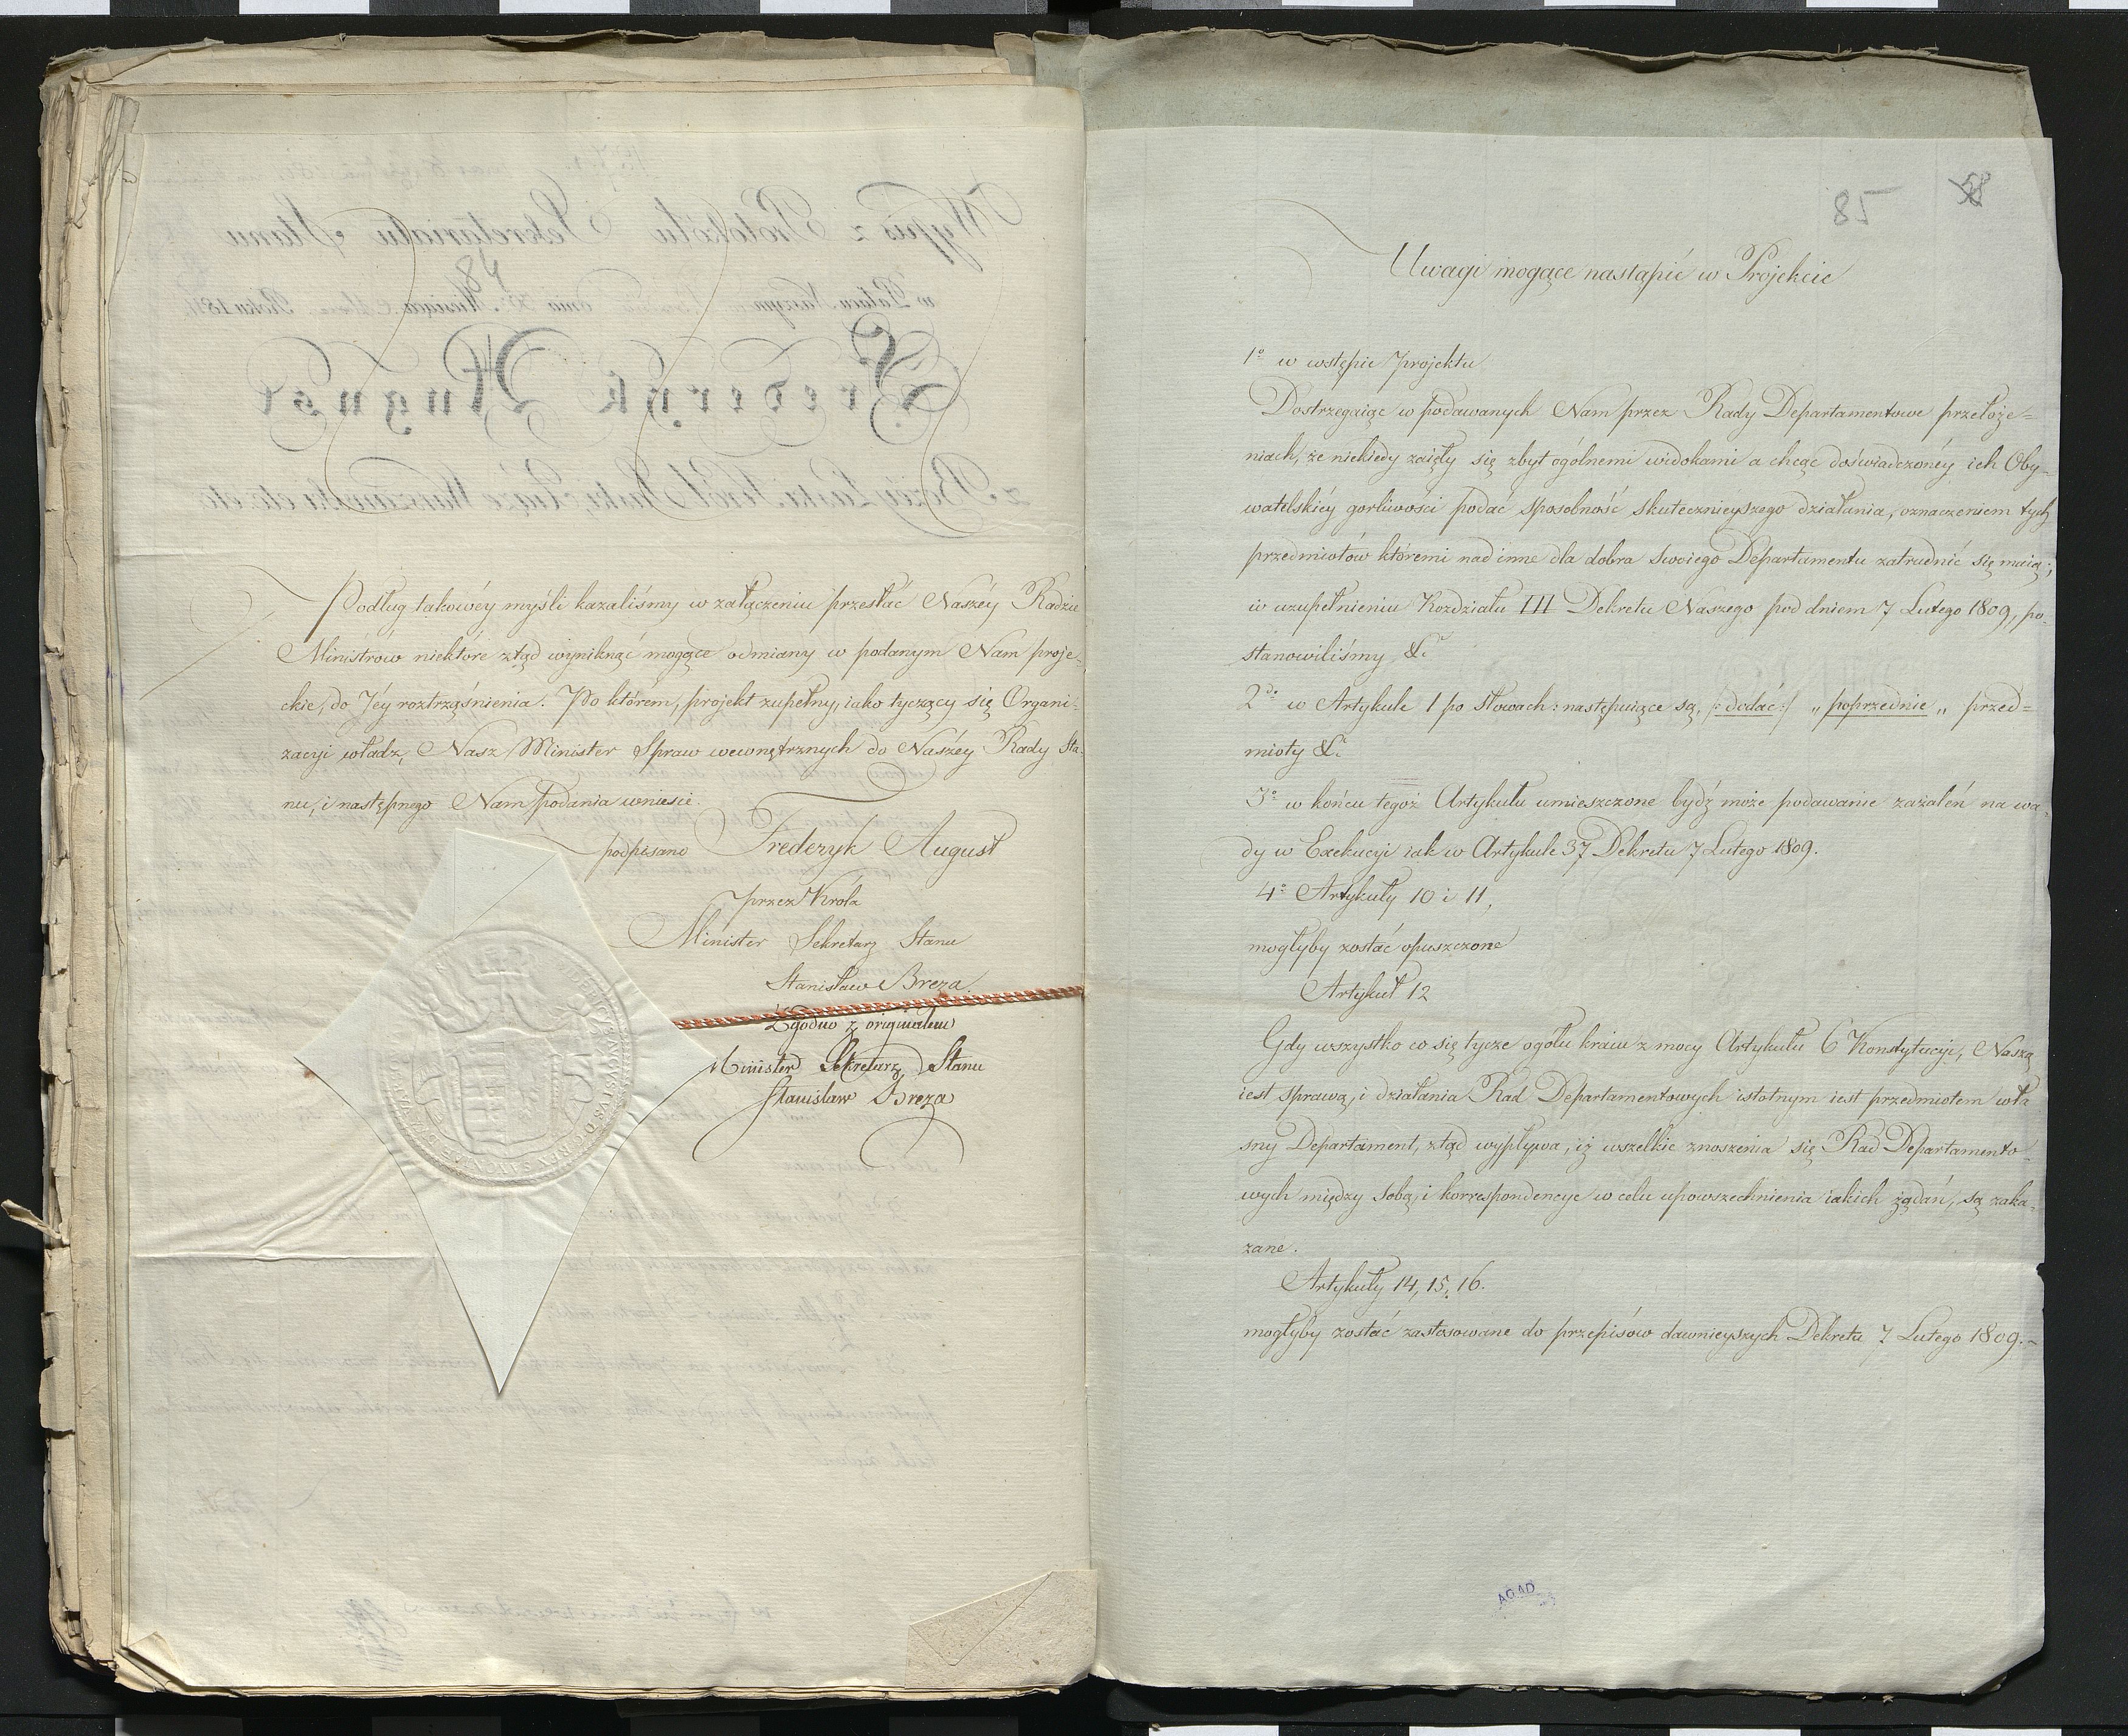 Podług takowéy myśli kazaliśmy w załączeniu przesłać Naszéy Radzie
Ministrów niektóre ztąd wyniknąć mogące odmiany w podanym Nam proje-
kcie, do Jéy roztrząśnienia. Po którém, projekt zupełny, iako tyczący się Organi-
zacyi władz, Nasz Minister Spraw wewnętrznych do Naszéy Rady Sta-
nu, i następnego Nam podania wniesie.
podpisano Fryderyk August
przez Króla
Minister Sekretarz Stanu
Stanisław Breza.
Zgodno z originałem
Minister Sekretarz Stanu
Stanisław Breza
85 58
Uwagi mogące nastąpić w Projekcie
1° w wstępie projektu
Dostrzegaiąc w podawanych Nam przez Rady Departamentowe przełoże=
niach, że niekiedy zaięły się zbyt ogólnemi widokami a chcąc doświadczonéy ich Oby-
watelskiéy gorliwości podać sposobność skutecznieyszego działania, oznaczeniem tych
przedmiotów któremi nad inne dla dobra swoiego Departamentu zatrudnić się maią;
w uzupełnieniu Rozdziału III Dekretu Naszego pod dniem 7 Lutego 1809, po-
stanowiliśmy &c
2do w Artykule 1 po słowach: następuiące są, /: dodać :/ „ poprzednie „ przed=
mioty &c
3° w końcu tegoż Artykułu umieszczone bydź może podawanie zażaleń na wa-
dy w Exekucyi iak w Artykule 37 Dekretu 7 Lutego 1809.
4° Artykuły 10 i 11,
mogłyby zostać opuszczone
Artykuł 12
Gdy wszystko co się tycze ogółu kraiu z mocy Artykułu 6 Konstytucyi, Naszą
iest sprawą, i działania Rad Departamentowych istotnym iest przedmiotem wła
sny Departament, ztąd wypływa, iż wszelkie znoszenia się Rad Departamento-
wych między sobą, i korrespondencye w celu upowszechnienia iakich żądań, są zaka-
zane.
Artykuły 14, 15, 16.
mogłyby zostać zastosowane do przepisów dawnieyszych Dekretu 7 Lutego 1809.-
AGAD